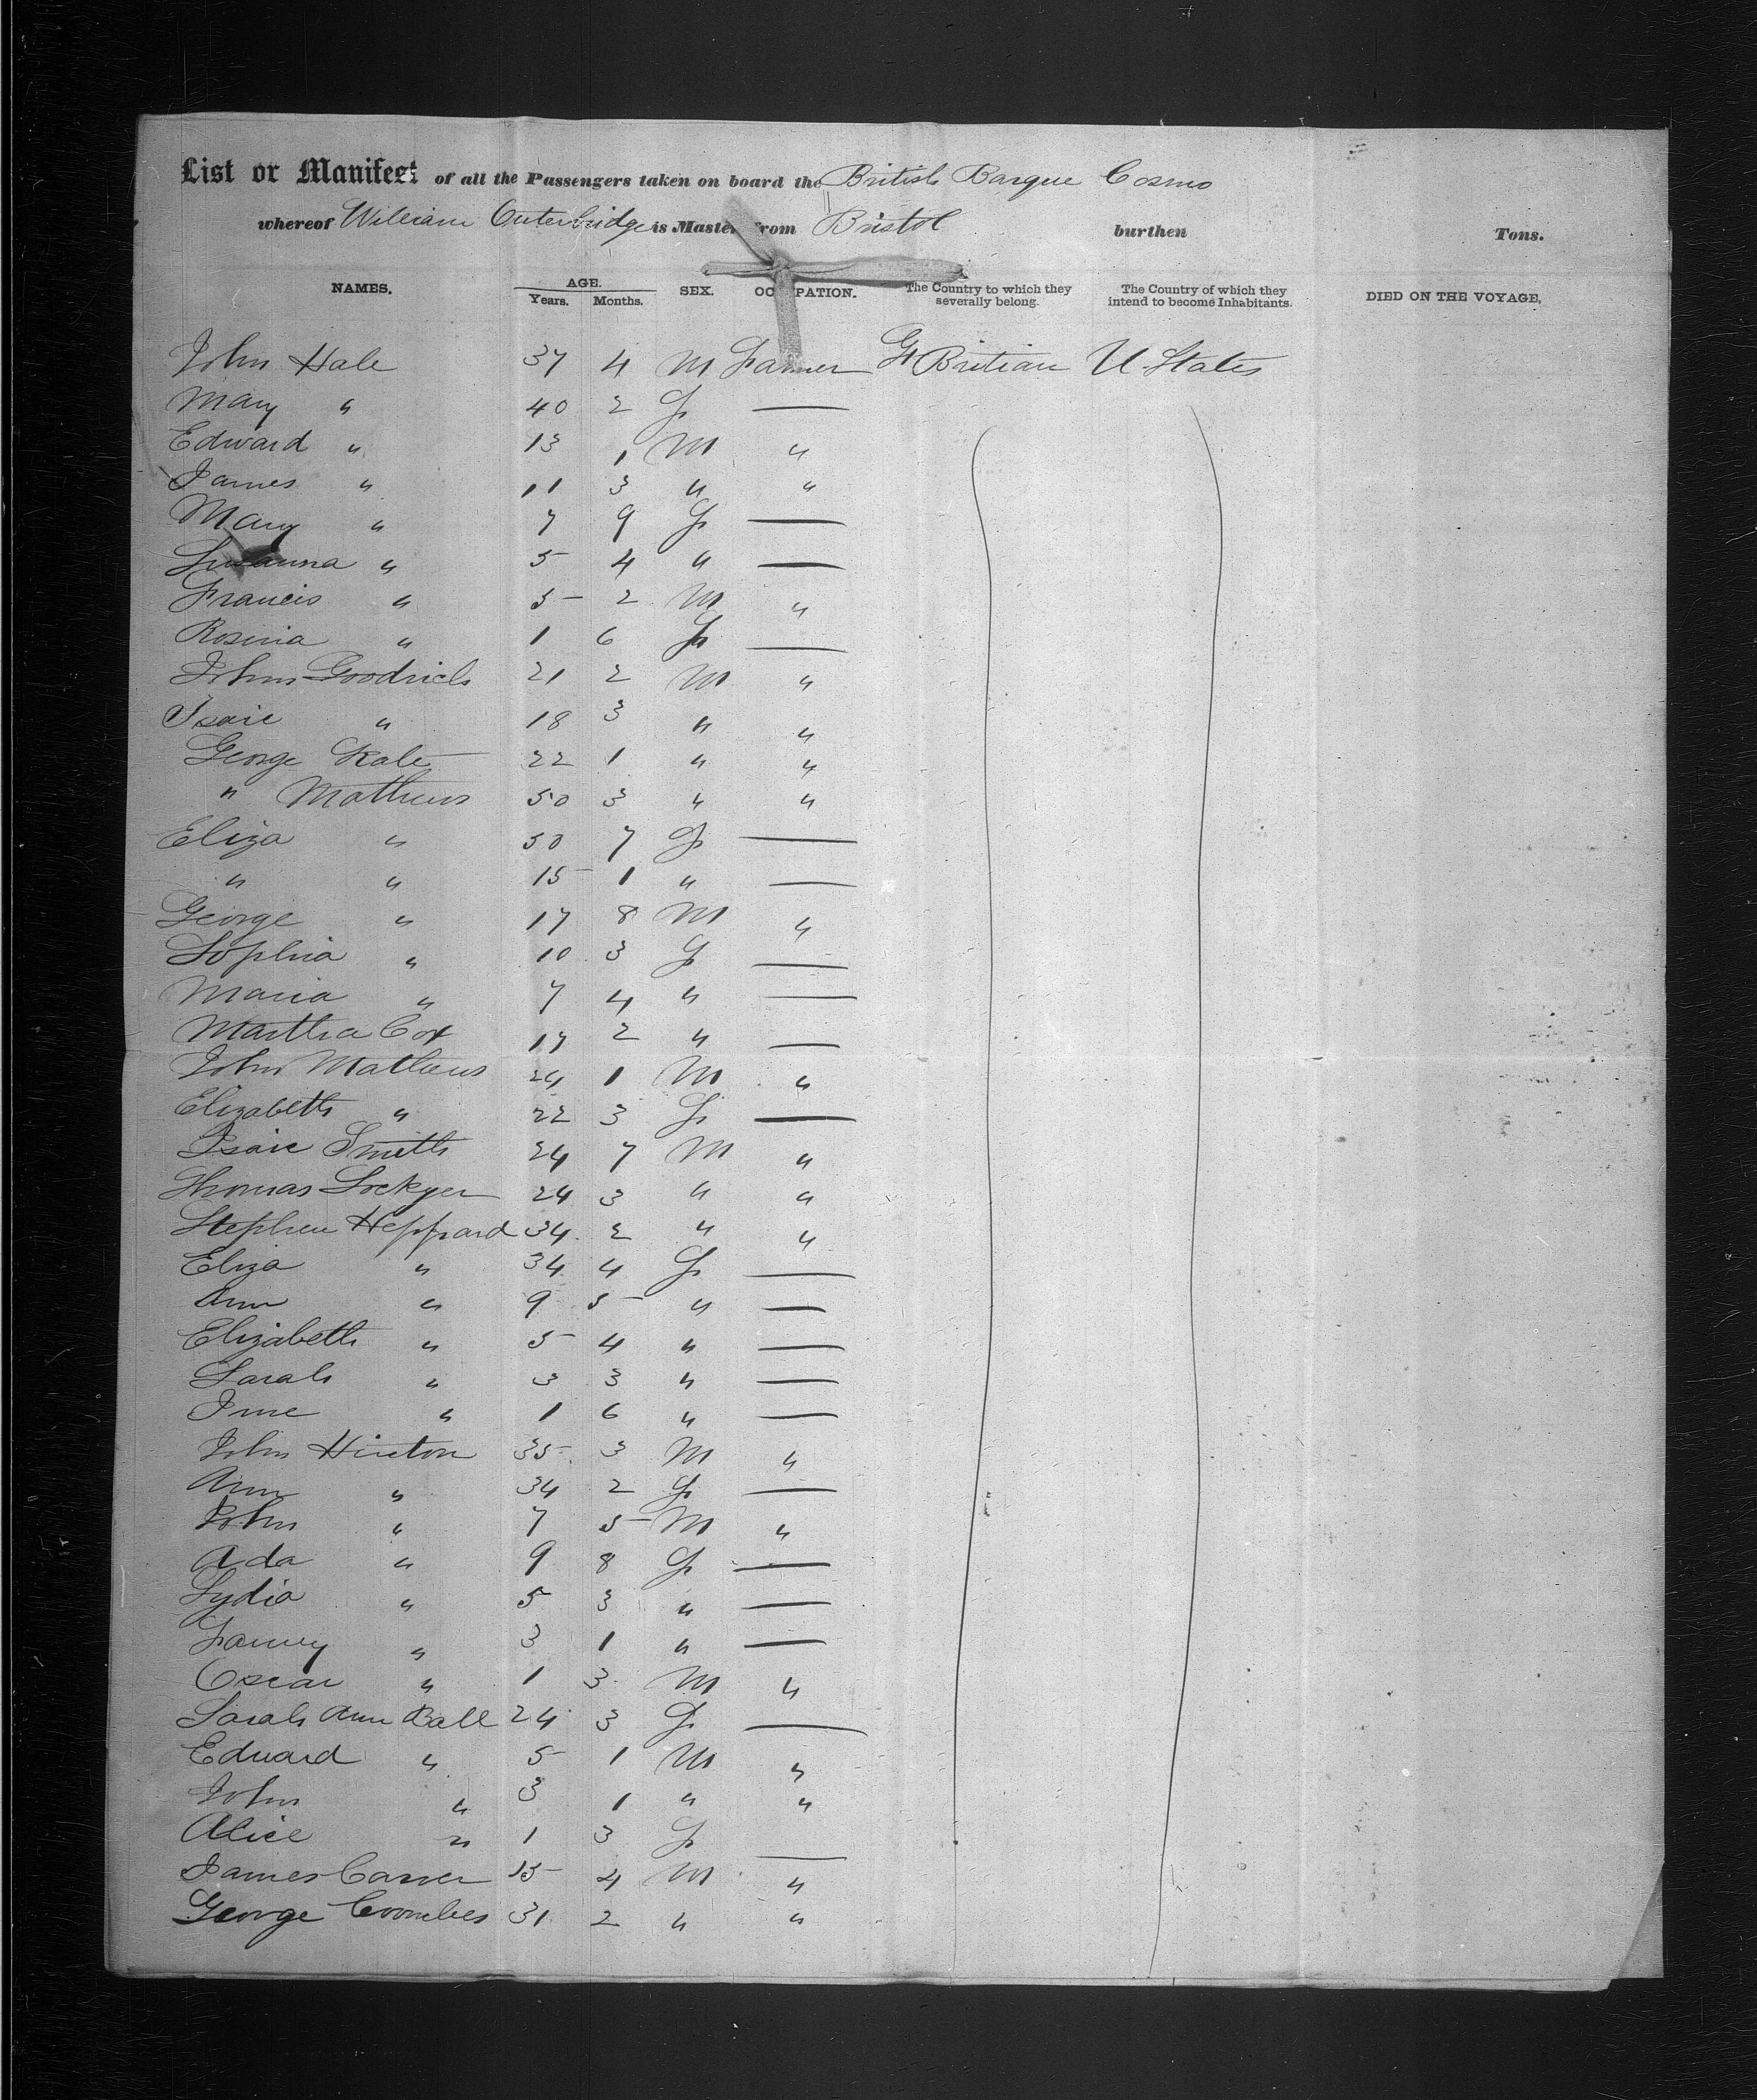 List or Manifest of all the Passengers taken on board the British Barque Cosmo
whereof William Outerbridge is Master from Bristol burthen Tons.
NAMES. AGE. Years. Months. SEX. OCCUPATION. The Country to which they severally belong. The Country of which they intend to become Inhabitants. DIED ON THE VOYAGE,
John Hale 37 4 M Farmer Gt Britian U States
Mary " 40 2 F —
Edward " 13 1 M "
James " 11 3 " "
Mary " 7 9 F —
Susanna " 5 4 " —
Francis " 5 2 M "
Rosina " 1 6 F —
John Goodrich 21 2 M "
Isaic " 18 3 " "
George Kale 22 1 " "
" Mathews 50 3 " "
Eliza " 50 7 F —
" " 15 1 " —
George " 17 8 M "
Sophia " 10 3 F —
Maria " 7 4 " —
Martha Cox 17 2 " —
John Mathews 24 1 M "
Elizabeth " 22 3 F —
Isaic Smith 24 7 M "
Thomas Lockyer 24 3 " "
Stephen Heppard 34 2 " "
Eliza " 34 4 F —
Ann " 9 5 " —
Elizabeth " 5 4 " —
Sarah " 3 3 " —
" 1 6 " —
John Hinton 35 3 M "
Ann " 34 2 F —
John " 7 5 M "
Ada " 9 8 F —
Lydia " 5 3 " —
Fanny " 3 1 " —
Oscar " 1 3 M "
Sarah Ann Ball 24 3 F —
Edward " 5 1 M "
John " 3 1 " "
Alice " 1 3 F —
James Carver 15 4 M "
George Coombes 31 2 " "